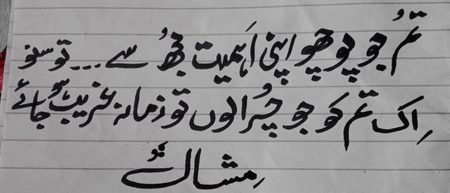 تُم جو پوچھو اپنی اَہمیت مجھُ سے... تو سنو
اِک تم کو جو چُرا لوں تو زمانہ غریب ہو جائے
مشال